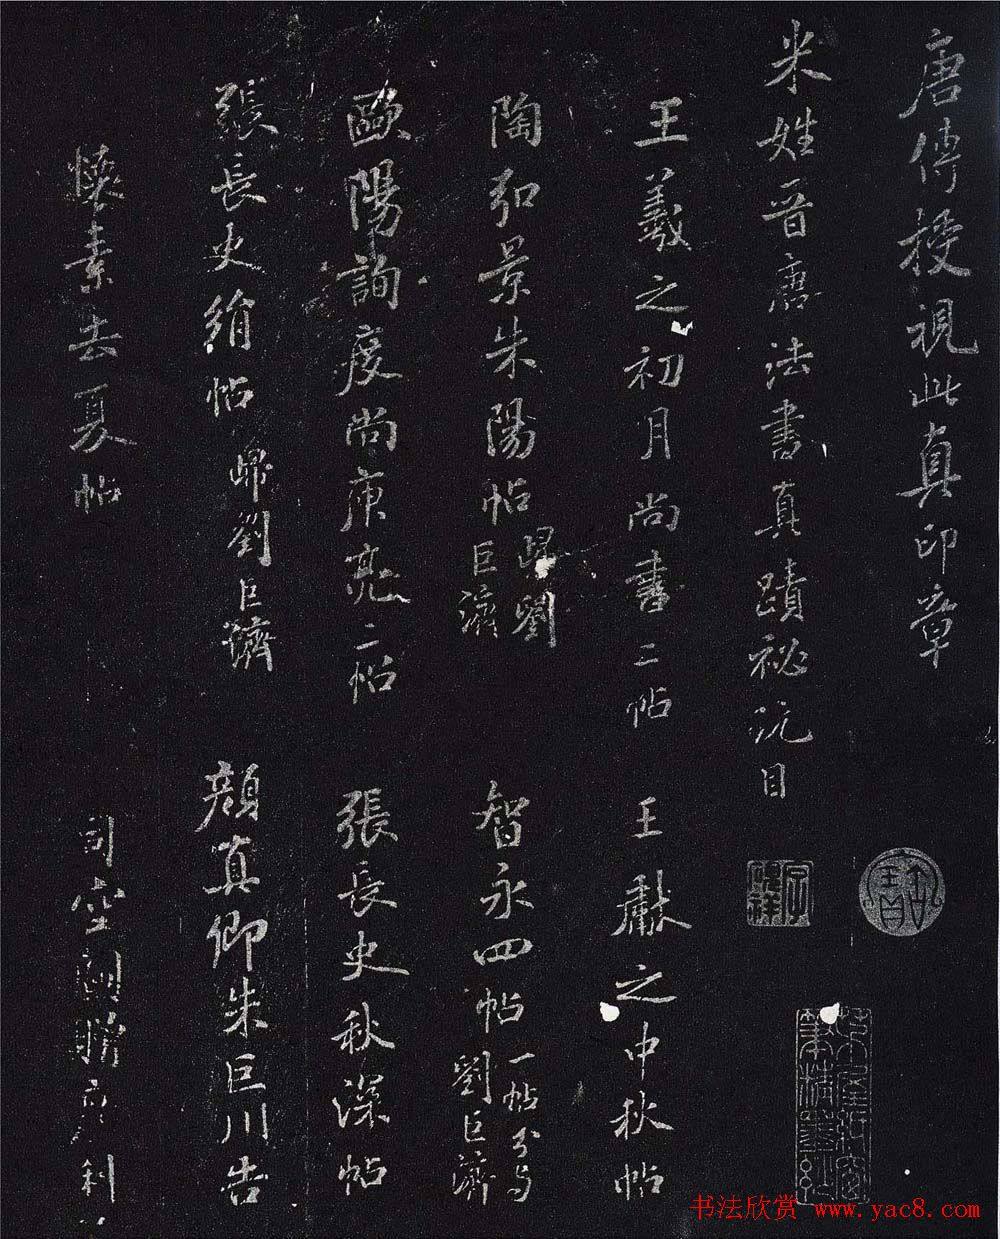 唐傅授視此真印章
米姓晋唐法書真蹟祕玩目
王羲之初月尚書二帖 王獻之中秋帖
陶弘景朱陽帖 歸劉巨濟 智永四帖 一帖分与劉巨濟
歐陽詢度尚庾亮二帖 張長史秋深帖
張長史絹帖 歸劉巨濟 顏真卿朱巨川告
懷素去夏帖 司空圖贈
书法欣赏 www.yac8.com